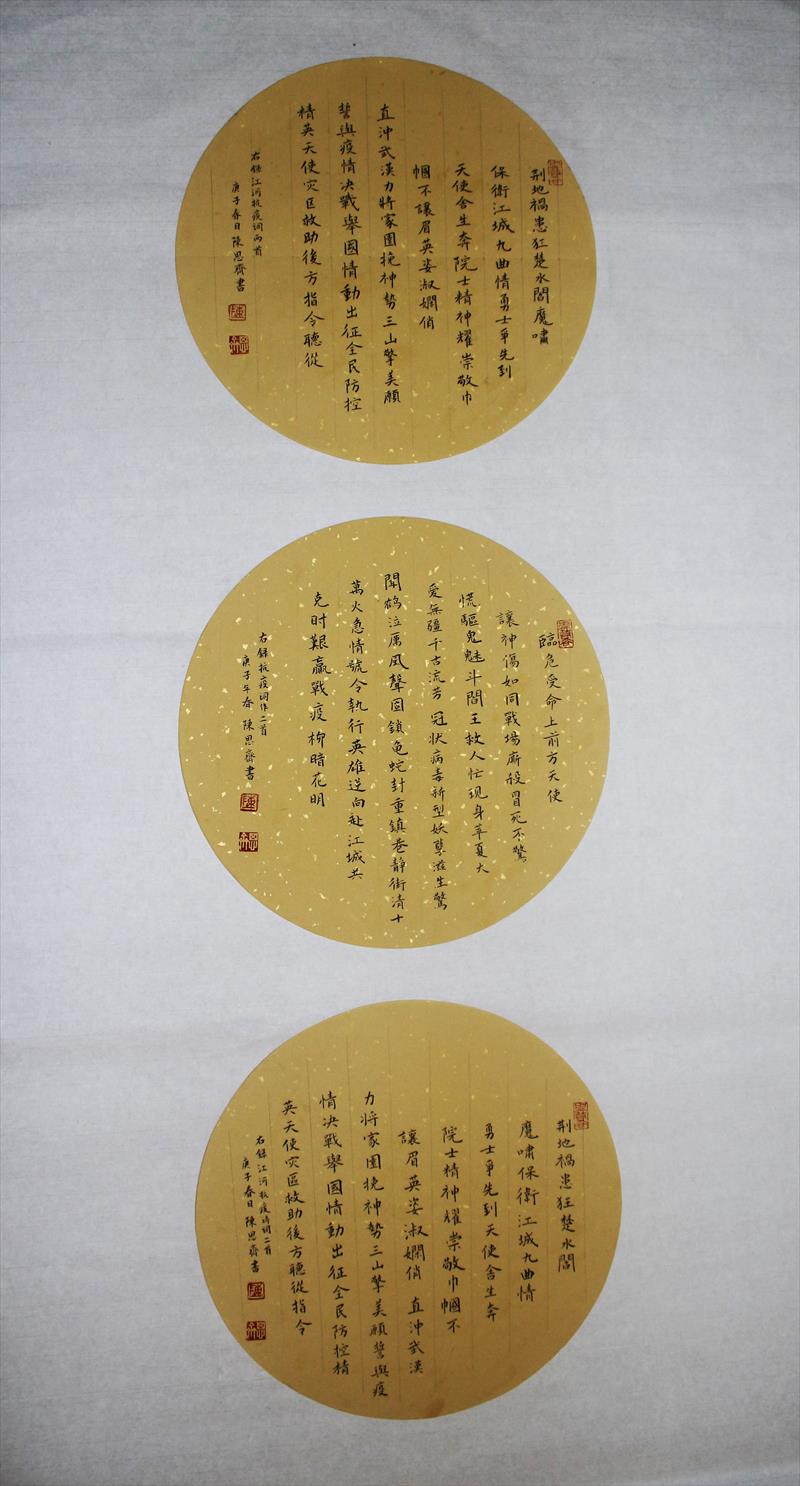 荆地禍患狂楚水閻魔嘯
保衛江城九曲情勇士爭先到
天使舍生奔院士精神耀崇敬巾
幗不讓眉英姿淑嫻俏
直沖武漢力將家園挽神勢三山擎美願
誓與疫情决戰舉國情動出征全民防控
精英天使灾區救助後方指令聽從
右錄江河抗疫詞两首
庚子春日陳思齊書
臨危受命上前方天使
讓神傷如同戰場廝殺冒死不驚
慌驅鬼魅斗閻王救人忙現身華夏大
愛無疆千古流芳 冠狀病毒新型妖孽滋生驚
聞鶴泣厲風聲因鎖龟蛇封重鎮巷靜街清十
萬火急情號令執行英雄逆向赴江城共
克时艱贏戰疫柳暗花明
右錄抗疫词作二首
庚子年春 陳思齊書
荆地禍患狂楚水閻
魔嘯保衛江城九曲情
勇士爭先到天使舍生奔
院士精神耀崇敬巾幗不
讓眉英姿淑嫻俏 直沖武漢
力将家園挽神勢三山擎美願誓與疫
情决戰舉國情動出征全民防控精
英天使灾區救助後方聽從指令
右錄江河抗疫诗詞二首
庚子春日陳思齊書